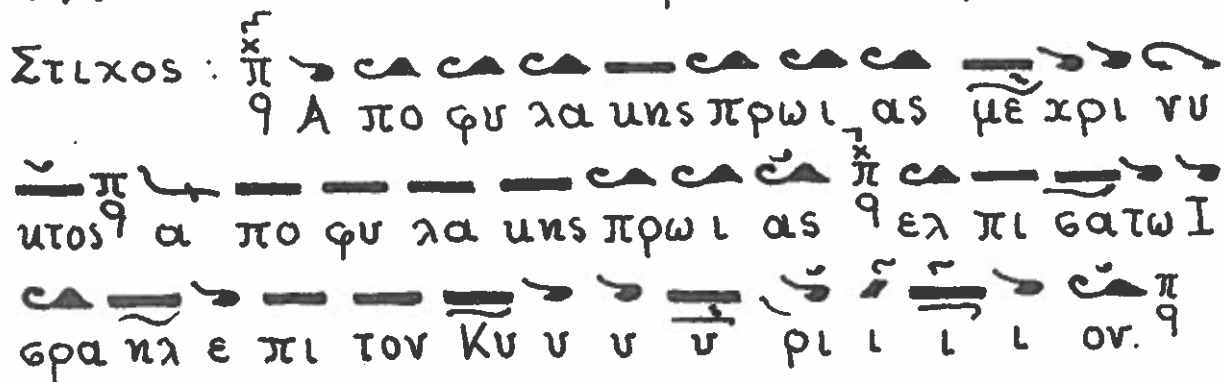 Στιχος : π q Α πο φυ λα κης πρωι ας με χρι νυ
κτος π q α πο φυ λα κης πρωι ας π q ελ πι σατω Ι
σρα ηλ ε πι τον Κυ υ υ υ ρι ι ι ι ον. π q